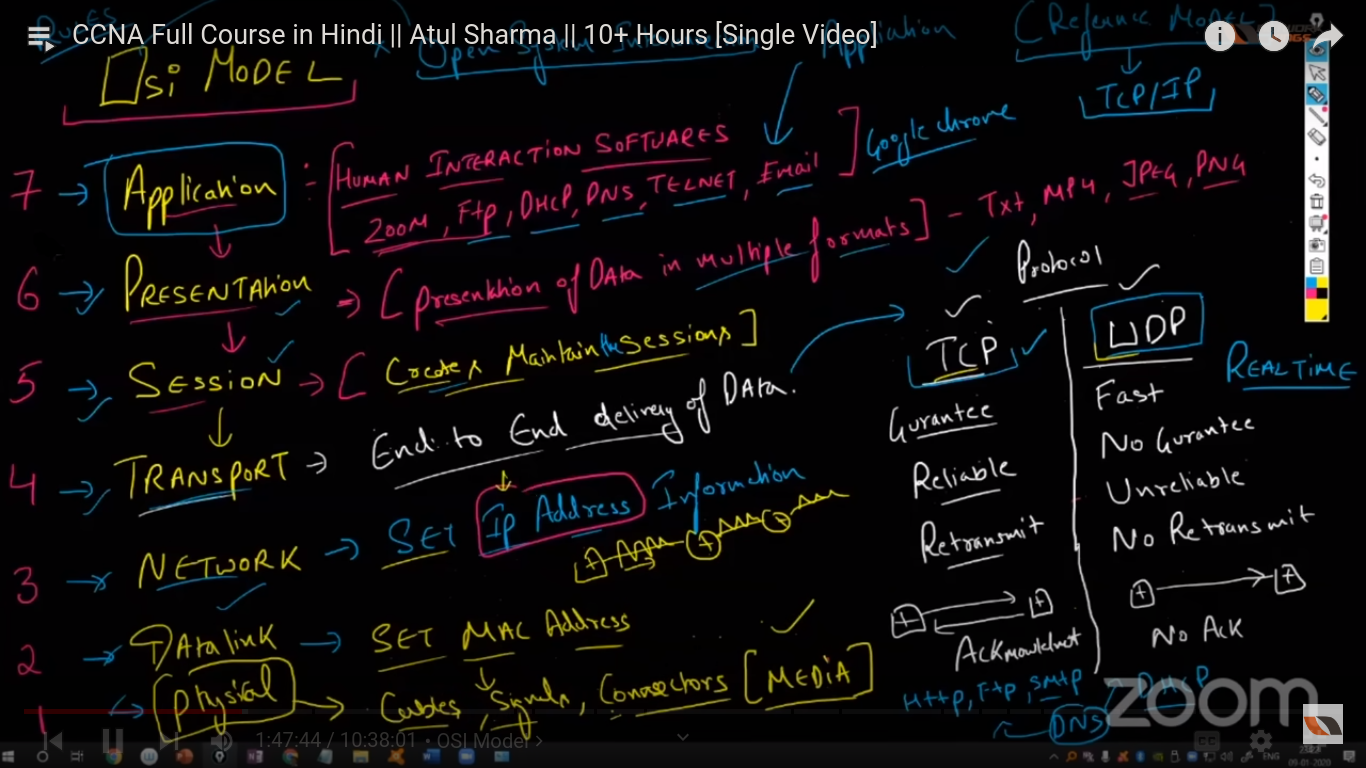 CCNA Full Course in Hindi || Atul Sharma || 10+ Hours [Single Video]
Open System
Application
[Reference MODEL]
OSi MODEL
TCP/IP
7 → Application : [HUMAN INTERACTION SOFTWARES
ZOOM, Ftp, DHCP, DNS, TELNET, Email] Google chrome
6 → PRESENTAtion → [presentation of DATA in multiple formats] - Txt, MP4, JPEG, PNG
5 → SESSION → [Create & Maintain the Sessions]
4 → TRANSPORT → End to End delivery of DATA.
3 → NETWORK → SET Ip Address Information
2 → DATA link → SET MAC Address
1 → physical → Cables, Signals, Connectors [MEDIA]
Protocol
TCP
UDP
REALTIME
Gurantee
Fast
Reliable
No Gurantee
Retransmit
Unreliable
No Retransmit
No Ack
Http, Ftp, SMtp
DHCP
DNS
zoom
1:47:44 / 10:38:01 • OSI Model ›
CC
ENG
09-01-2020